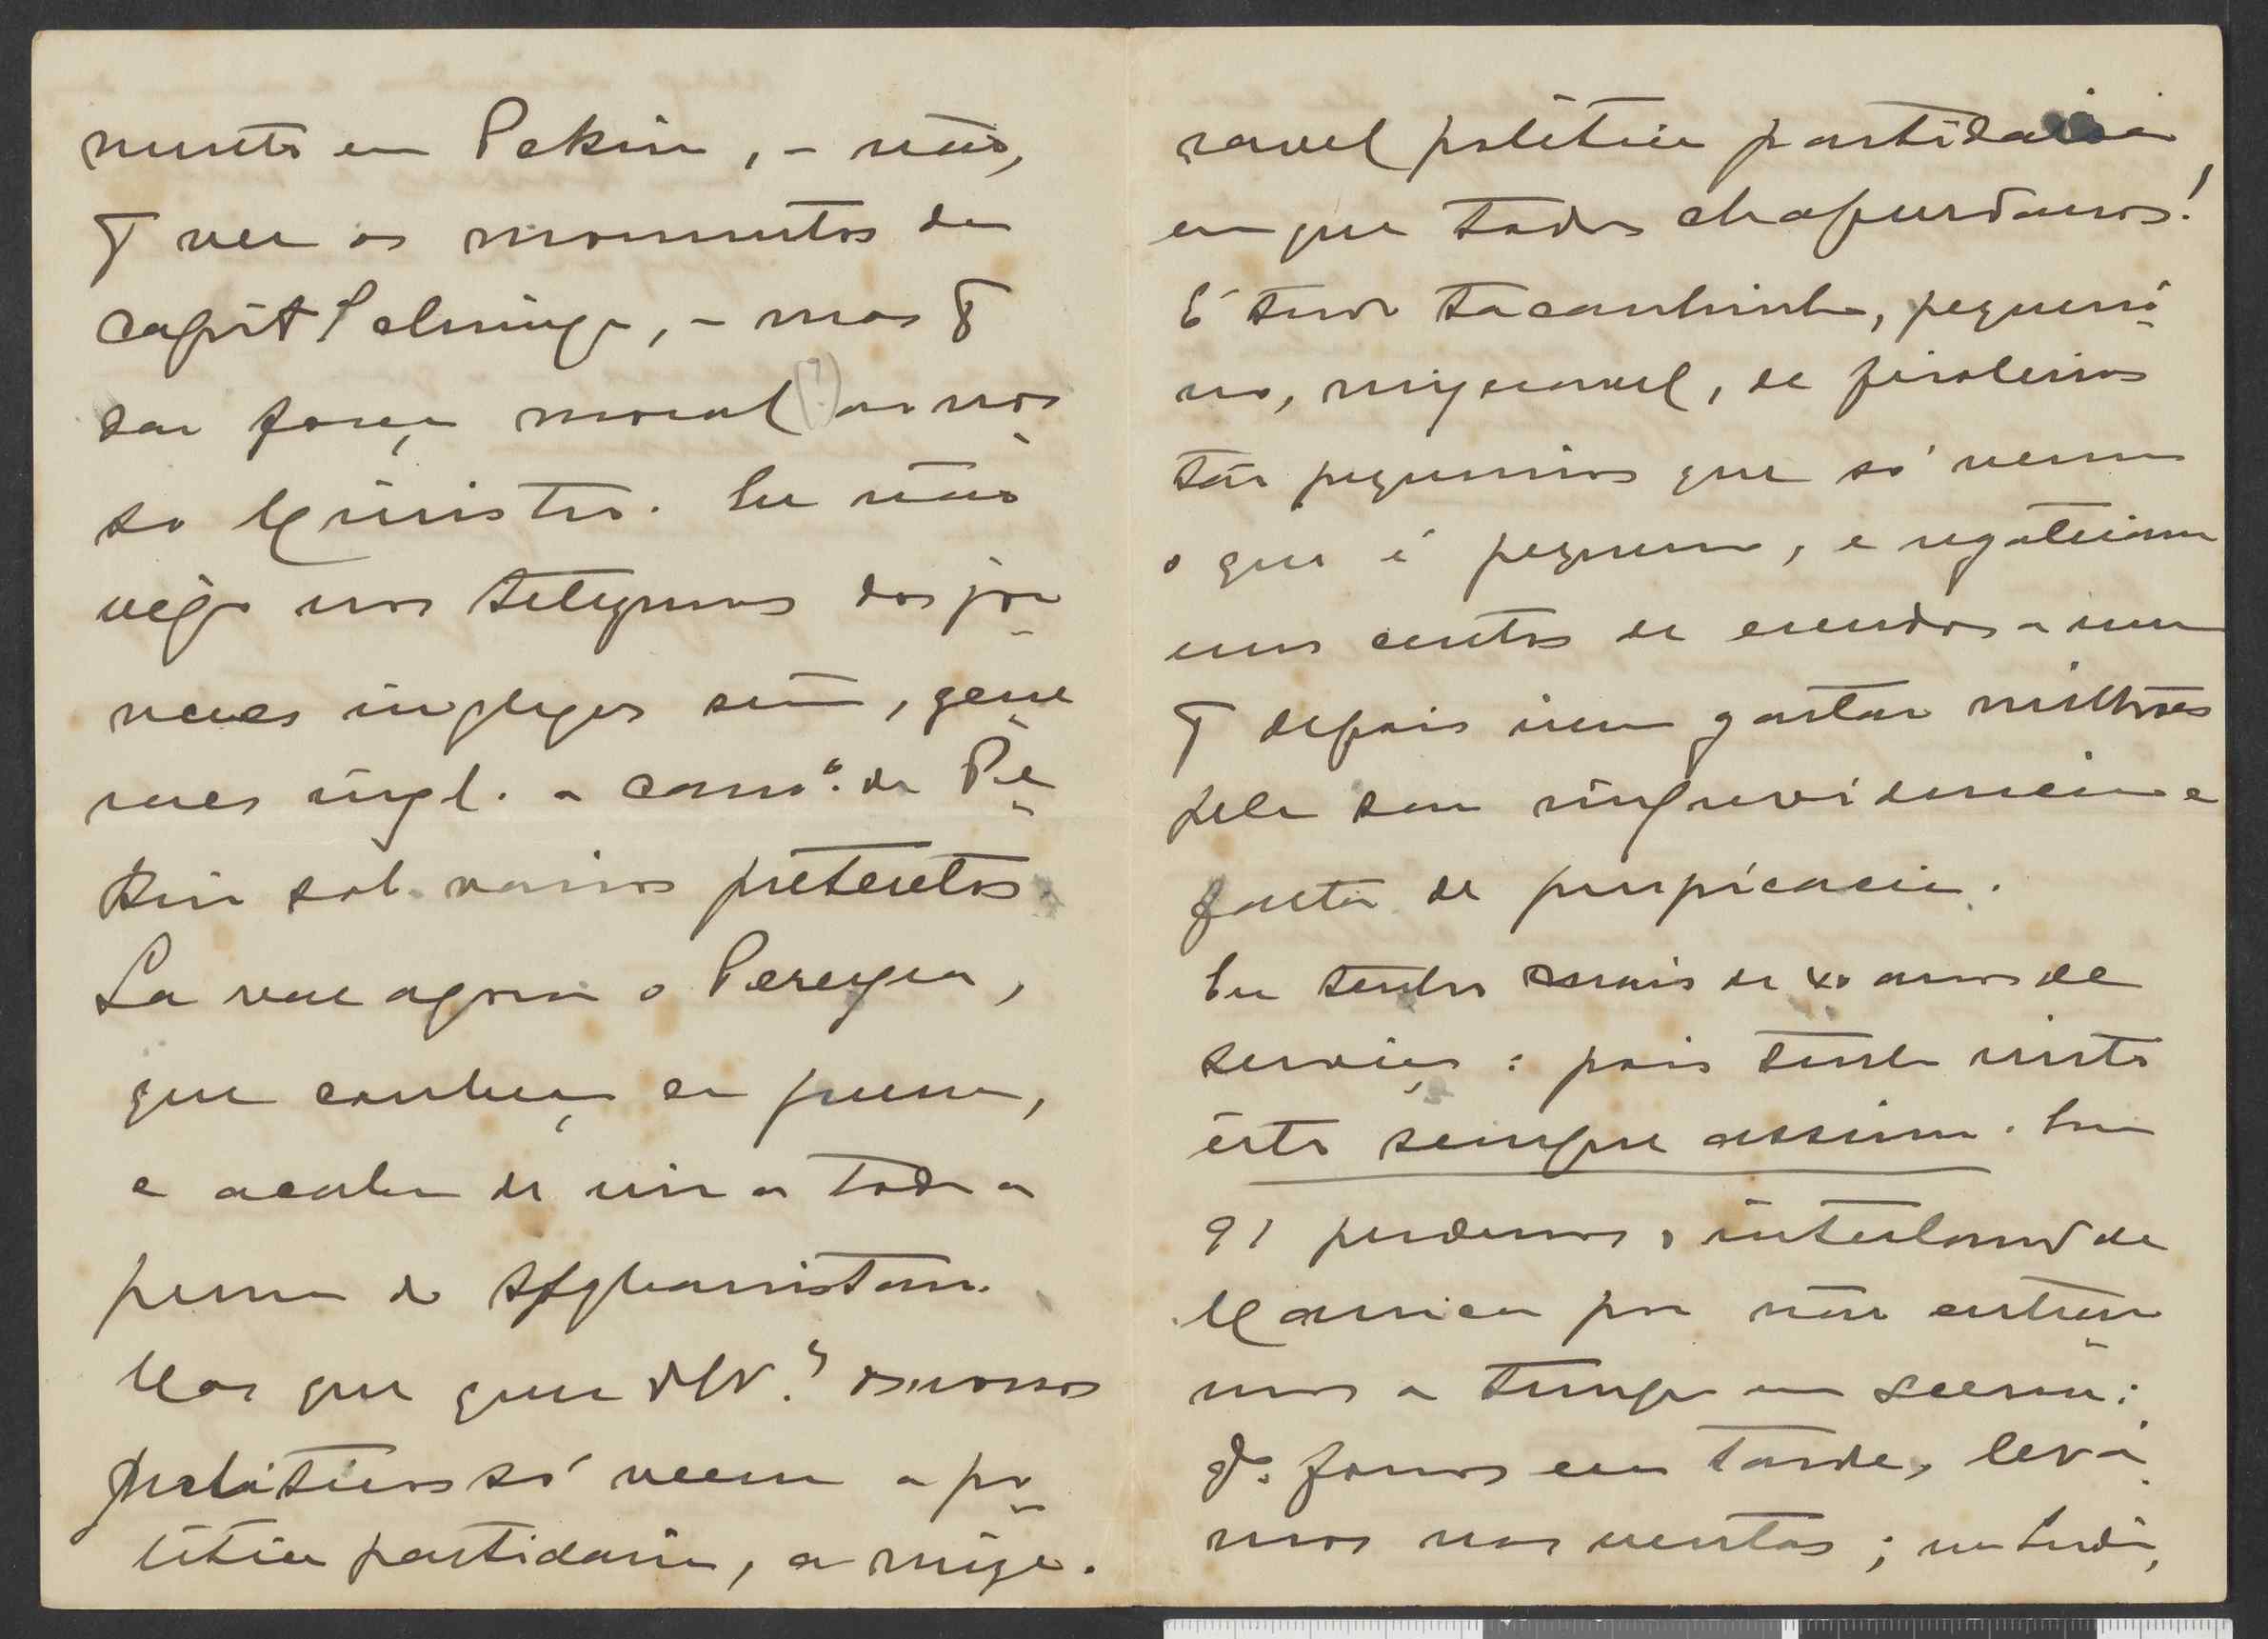 mento em Pekin, – não,
p.ª ver os monumentos da
capit. Pelninga, – mas p.ª
dar força moral (?) ao nos-
so Ministro. Eu não
vêjo nos telegramas dos jor-
naes inglezes sim, gene-
raes ingl. a cam.º de Pe-
kin sob varios pretextos
La vae agora o Pereyra,
que conheço em pessoa,
e acaba de vir a toda a
pressa do Afghanistan.
Mas que quer V.? os nossos
politicos só veem a po-
litica partidaria, a mize-
ravel politica partidaria,
em que todos chafurdamos!
É tudo tacanhinho, pequeni-
no, mizeravel, de
tão pequeninos que só veem
o que é pequeno, e regateiam
uns centos de escudos
p.ª depois irem gastar milhões
pela sua imprevidencia e
falta de perspicacia.
Eu tenho mais de 40 anos de
serviço: pois tenho visto
isto sempre assim. Em
91 perdemos o interland de
Manica por não entrar-
mos a tempo em scena:
q.do fomos era tarde, levá-
mos nas ventas; na India,